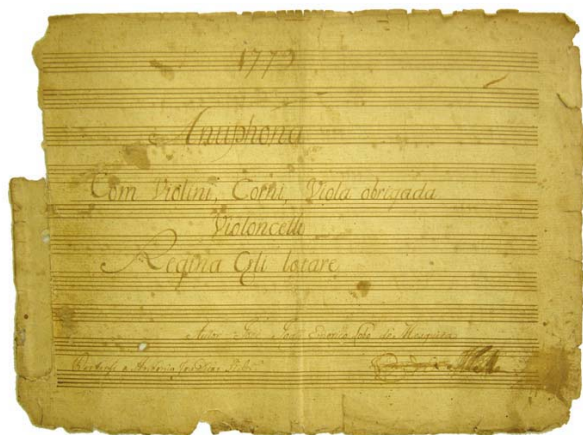 1779
Antiphona
Com Violini, Corni, Viola obrigada
Violoncello
Regina Cæli lætare
Autor José Joaqm Emerico Lobo de Mesquita